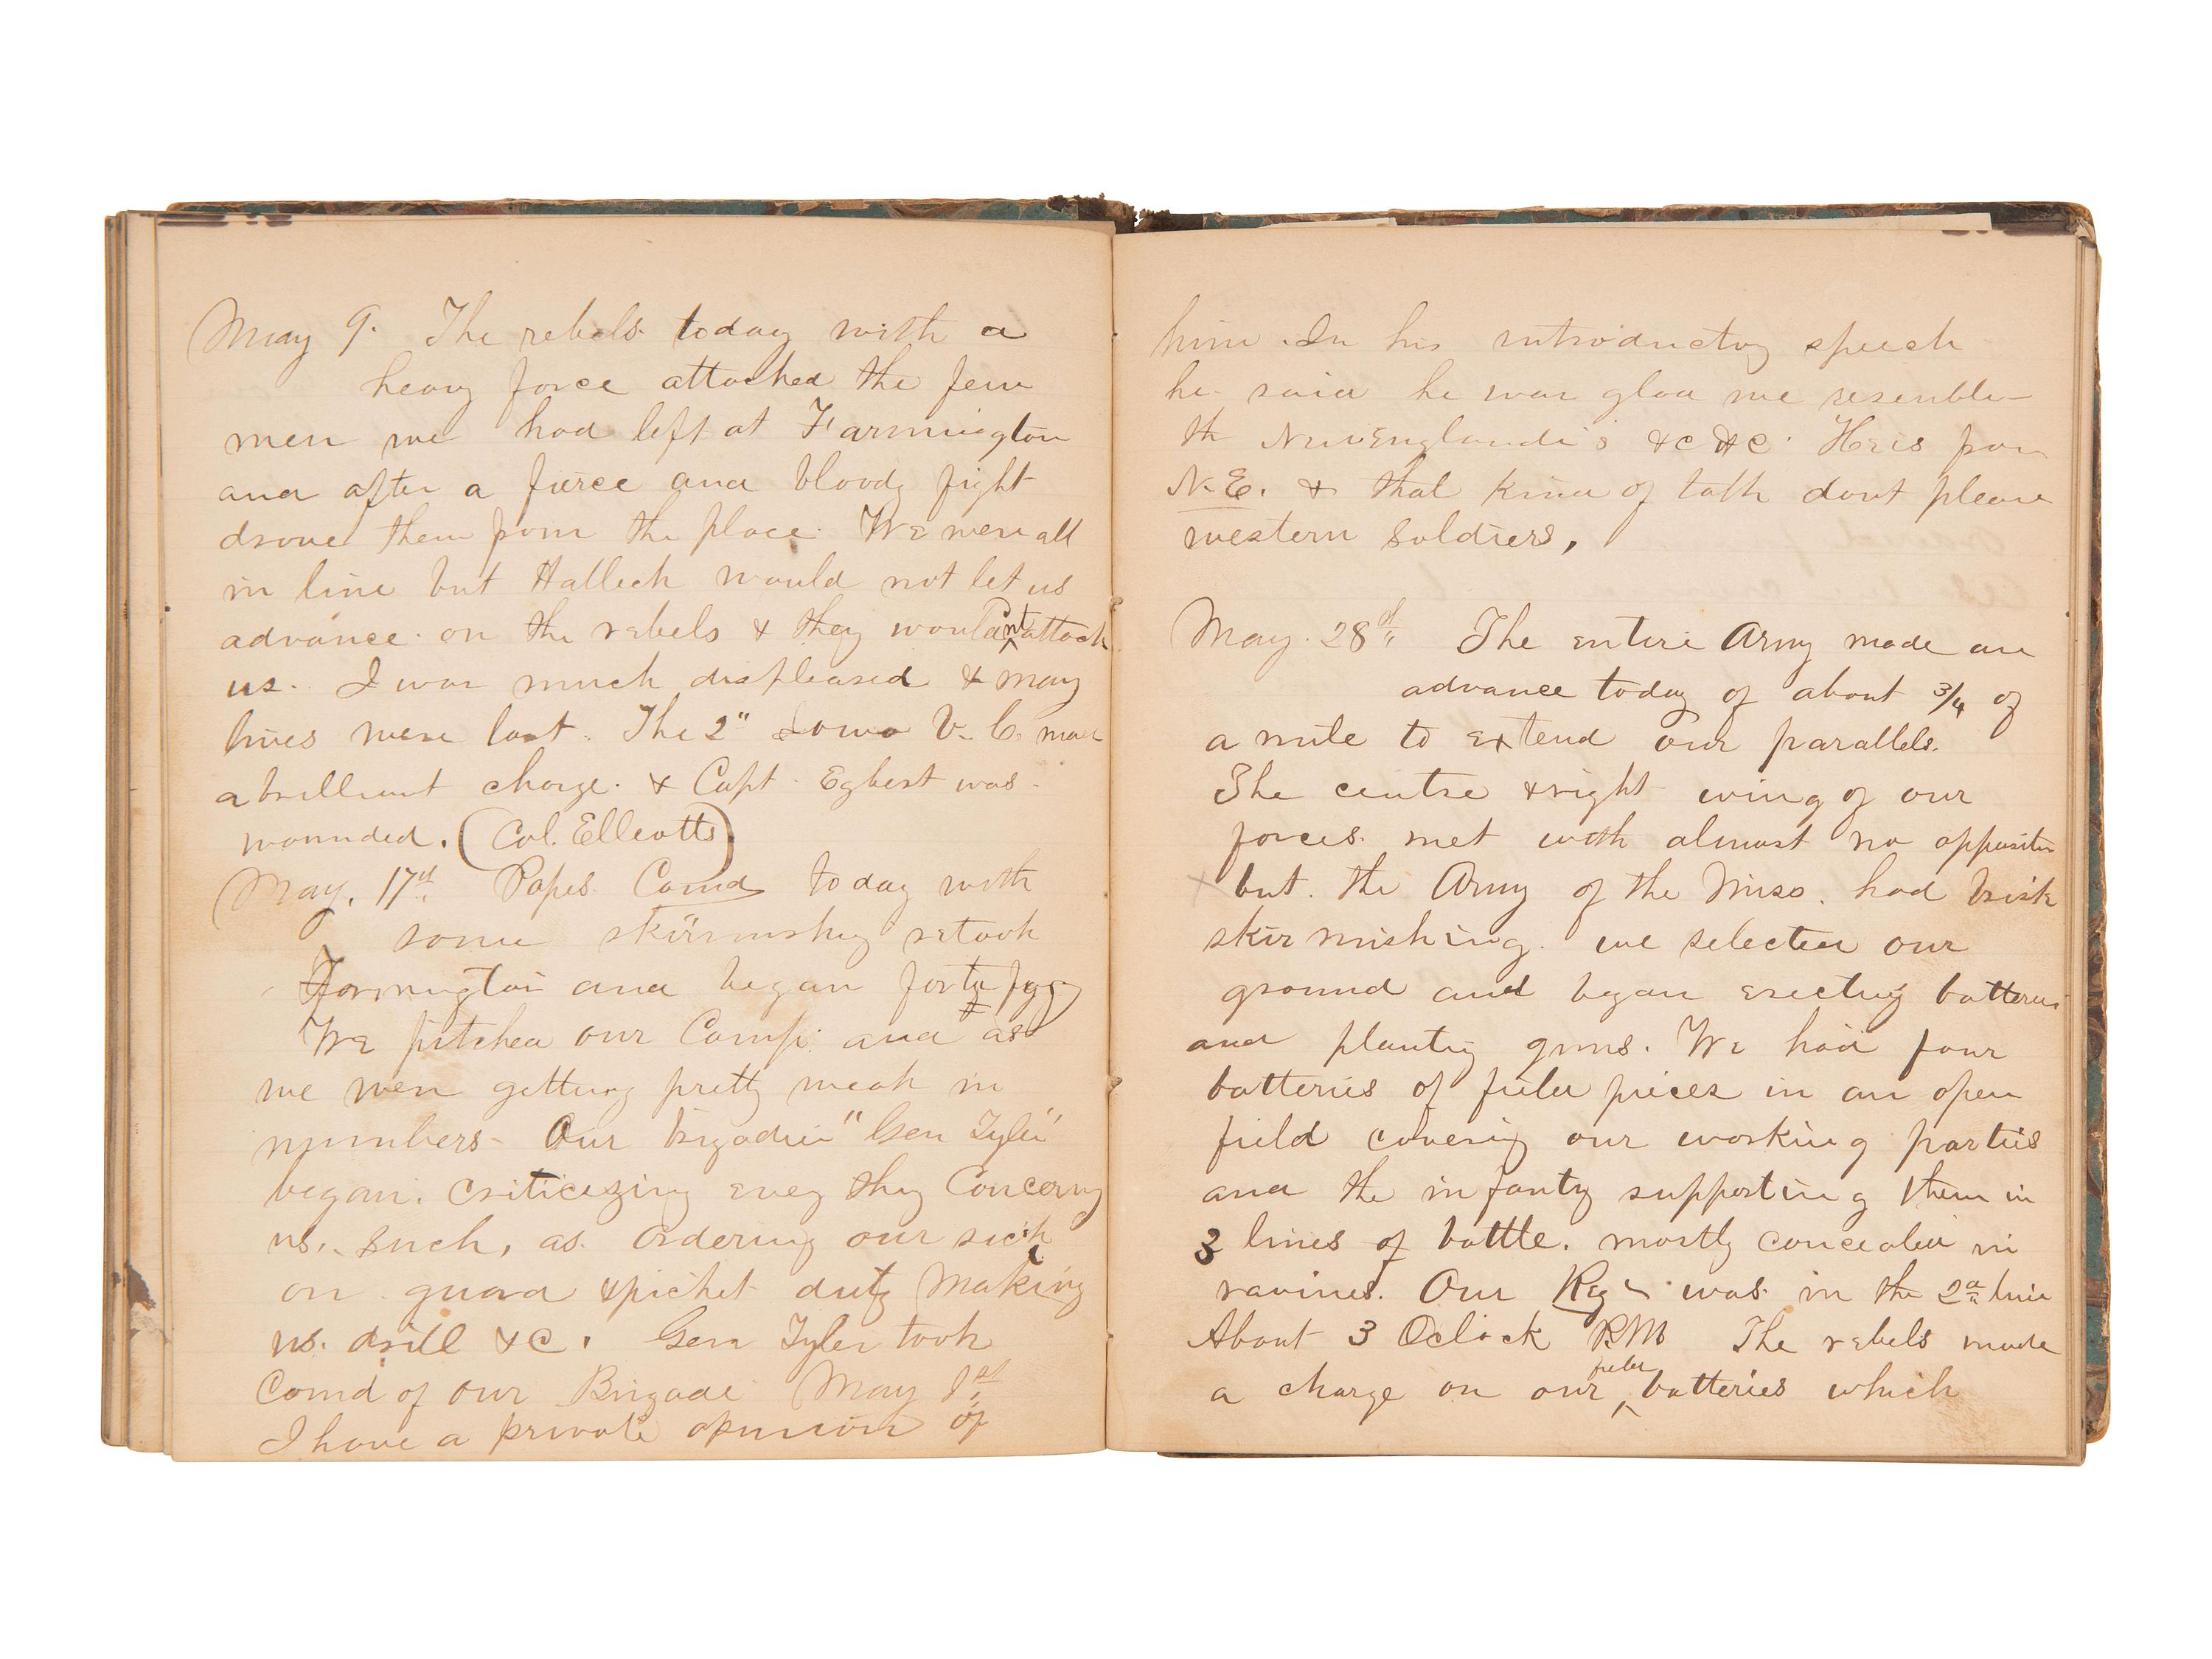 May 9. The rebels today with a
heavy force attacked the few
men we had left at Farmington
and after a fierce and bloody fight
drove them from the place. We were all
in line but Halleck would not let us
advance on the rebels & they would nt attack
us. I was much displeased & many
lives were lost. The 2" Iowa V. C. made
a brilliant charge. & Capt. Egbert was
wounded. (Col. Elliotts)
May. 17th Popes Comd today with
some skirmishing retook
Farmington and began fortifyg
We pitched our Camp and as
we were getting pretty weak in
numbers Our brigadier "Gen Tyler"
began. criticizing every thing Concerning
us. such, as. ordering our sick
on guard & picket duty Making
us. drill &c. Gen Tyler took
Comd of our Brigade May 1st
I have a private opinion of
him. In his introductory speech
he said he was glad we resemble
th NewEnglanders &c &c. He is from
N.E. & that kind of talk dont please
western Soldiers,
May. 28th The entire Army made an
advance today of about 3/4 of
a mile to extend our parallels.
The centre & right wing of our
forces. met with almost no opposition
but. the Army of the Miss. had brisk
skirmishing. we selected our
ground and began erecting batteries
and planting guns. We had four
batteries of field pieces in an open
field covering our working parties
and the infantry supporting them in
3 lines of battle. mostly concealed in
ravines. Our Reg was. in the 2d line
About 3 Oclock P.M. The rebels made
a charge on our field batteries which